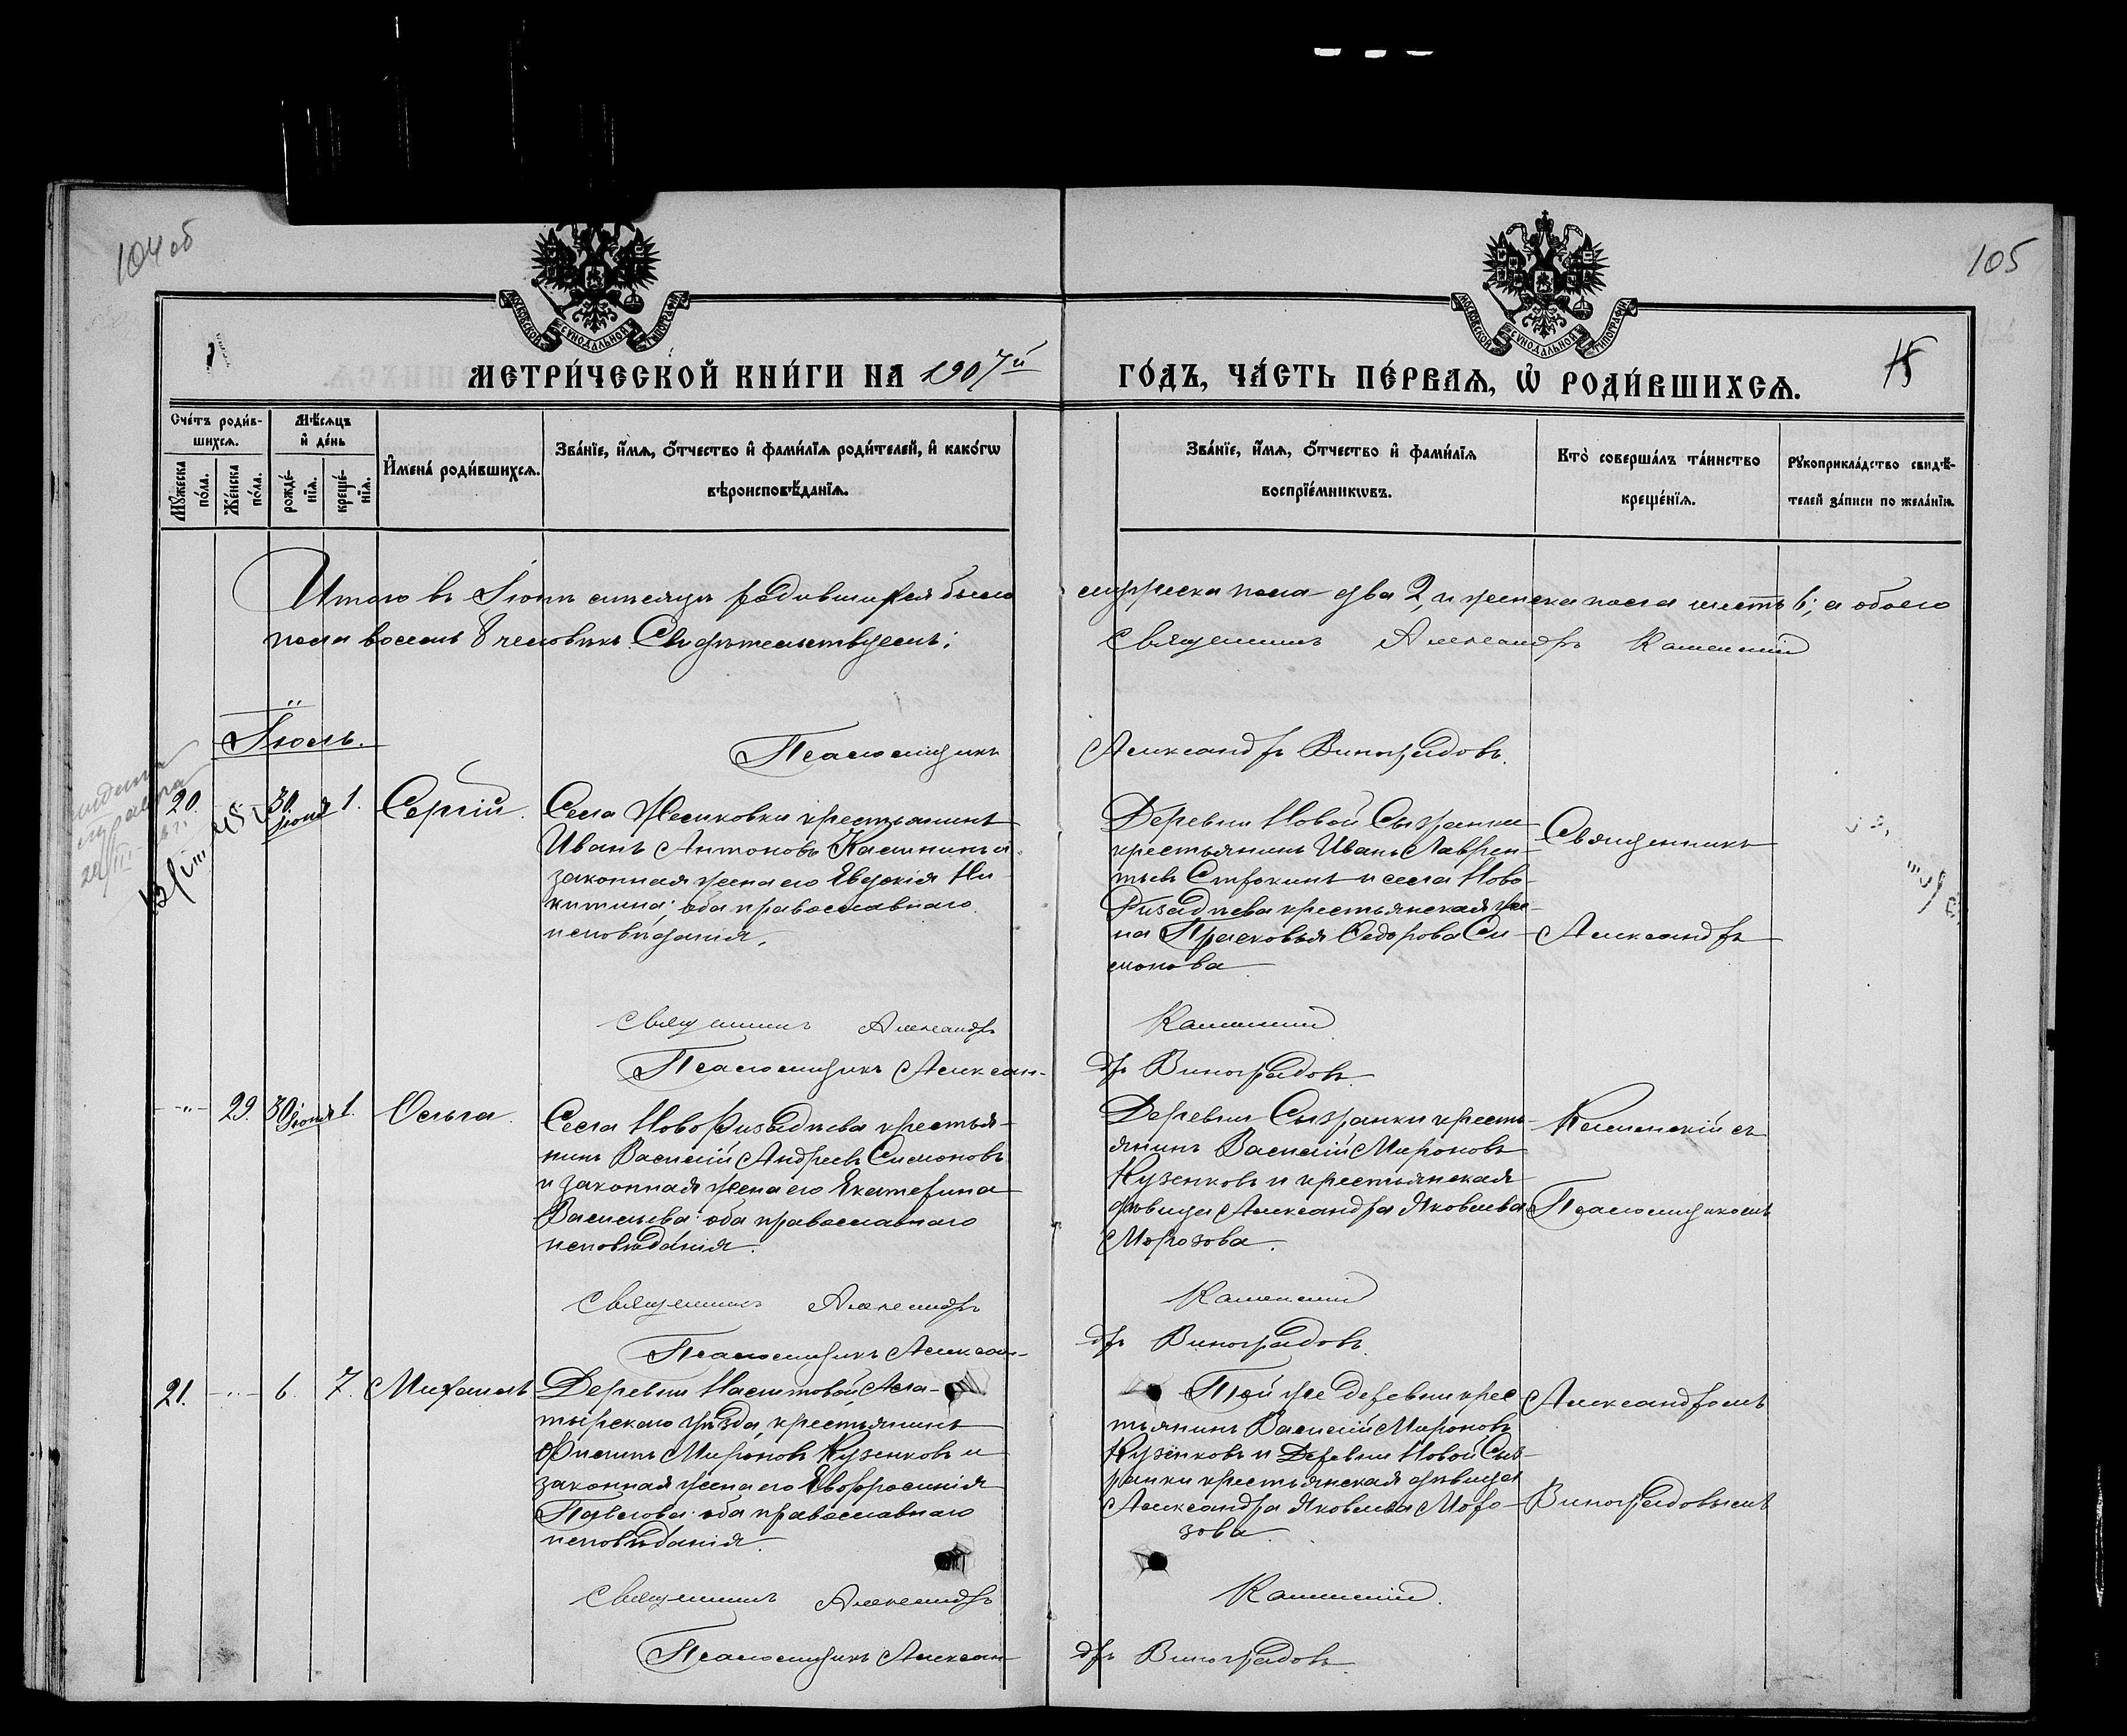 104 об
105
МОСКОВСКОЙ СѴНОДАЛЬНОЙ ТИПОГРАФІИ
МОСКОВСКОЙ СѴНОДАЛЬНОЙ ТИПОГРАФІИ
МЕТРИ́ЧЕСКОЙ КНИ́ГИ НА 1907й
ГО́ДЪ, ЧА́СТЬ ПЕ́РВАѦ, Ѽ РОДИ́ВШИХСѦ.
15
Сче́тъ роди́в-
шихсѧ.
Мꙋ́жеска по́ла.
Же́нска по́ла.
Мѣ́сѧцъ
и҆ де́нь
рожде́-
нїѧ.
креще́-
нїѧ.
И҆мена́ роди́вшихсѧ.
Зва́нїе, и҆́мѧ, ѻ҆́тчество и҆ фами́лїѧ роди́телей, и҆ како́гѡ
вѣроисповѣ́данїѧ.
Зва́нїе, и҆́мѧ, ѻ҆́тчество и҆ фами́лїѧ
воспрїе́мникѡвъ.
Кто̀ соверша́лъ та́инство
креще́нїѧ.
Рꙋкоприкла́дство свидѣ́-
телей за́писи по жела́нїю.
Итого въ Іюнѣ мѣсяцѣ родившихся было
пола восемь 8 человѣкъ. Свидѣтельствуемъ:
мужеска пола два 2, и женска пола шесть 6; а обоего
Священникъ Александръ Каменскій
Псаломщикъ
Александръ Виноградовъ.
Іюль.
20.
30. Іюня
1.
Сергій.
Села Жемковки крестьянинъ
Иванъ Антоновъ Калининъ и
законная жена его Евдокія Ни-
китина; оба православнаго
исповѣданія.
Деревни Новой Сызранки
крестьянинъ Иванъ Лаврен-
тьевъ Строкинъ и села Ново-
Ризадѣева крестьянская же-
на Прасковья Ѳедорова Си-
монова.
Священникъ
Александръ
Священникъ Александръ
Каменскій
Псаломщикъ Алексан-
дръ Виноградовъ.
29.
30 Іюня
1.
Ольга.
Села Ново Ризадѣева крестья-
нинъ Василій Андреевъ Симоновъ
и законная жена его Екатерина
Васильева: оба православнаго
исповѣданія.
Деревни Сызранки кресть-
янинъ Василій Мироновъ
Кузенковъ и крестьянская
дѣвица Александра Яковлева
Морозова.
Каменскій съ
Псаломщикомъ
Священникъ Александръ
Каменскій
Псаломщикъ Алексан-
дръ Виноградовъ.
21.
6.
7.
Михаилъ
Деревни Наситовой Ала-
тырскаго уѣзда, крестьянинъ
Филипъ Мироновъ Кузенковъ и
законная жена его Евфросинія
Павлова: оба православнаго
исповѣданія.
Той же деревни крес-
тьянинъ Василій Мироновъ
Кузенковъ и Деревни Новой Сыз-
ранки крестьянская дѣвица
Александра Яковлева Моро-
зова.
Александромъ
Виноградовымъ
Священникъ Александръ
Каменскій.
Псаломщикъ Алексан-
дръ Виноградовъ.